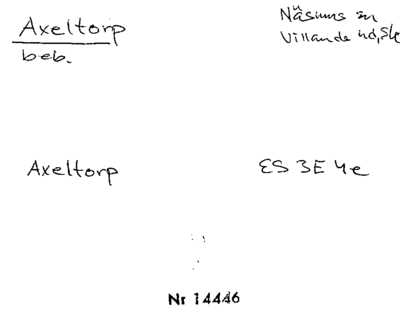 Axeltorp
beb.
Näsums sn
Villands hd, Sk
Axeltorp
ES 3E 4e
Nr 14446